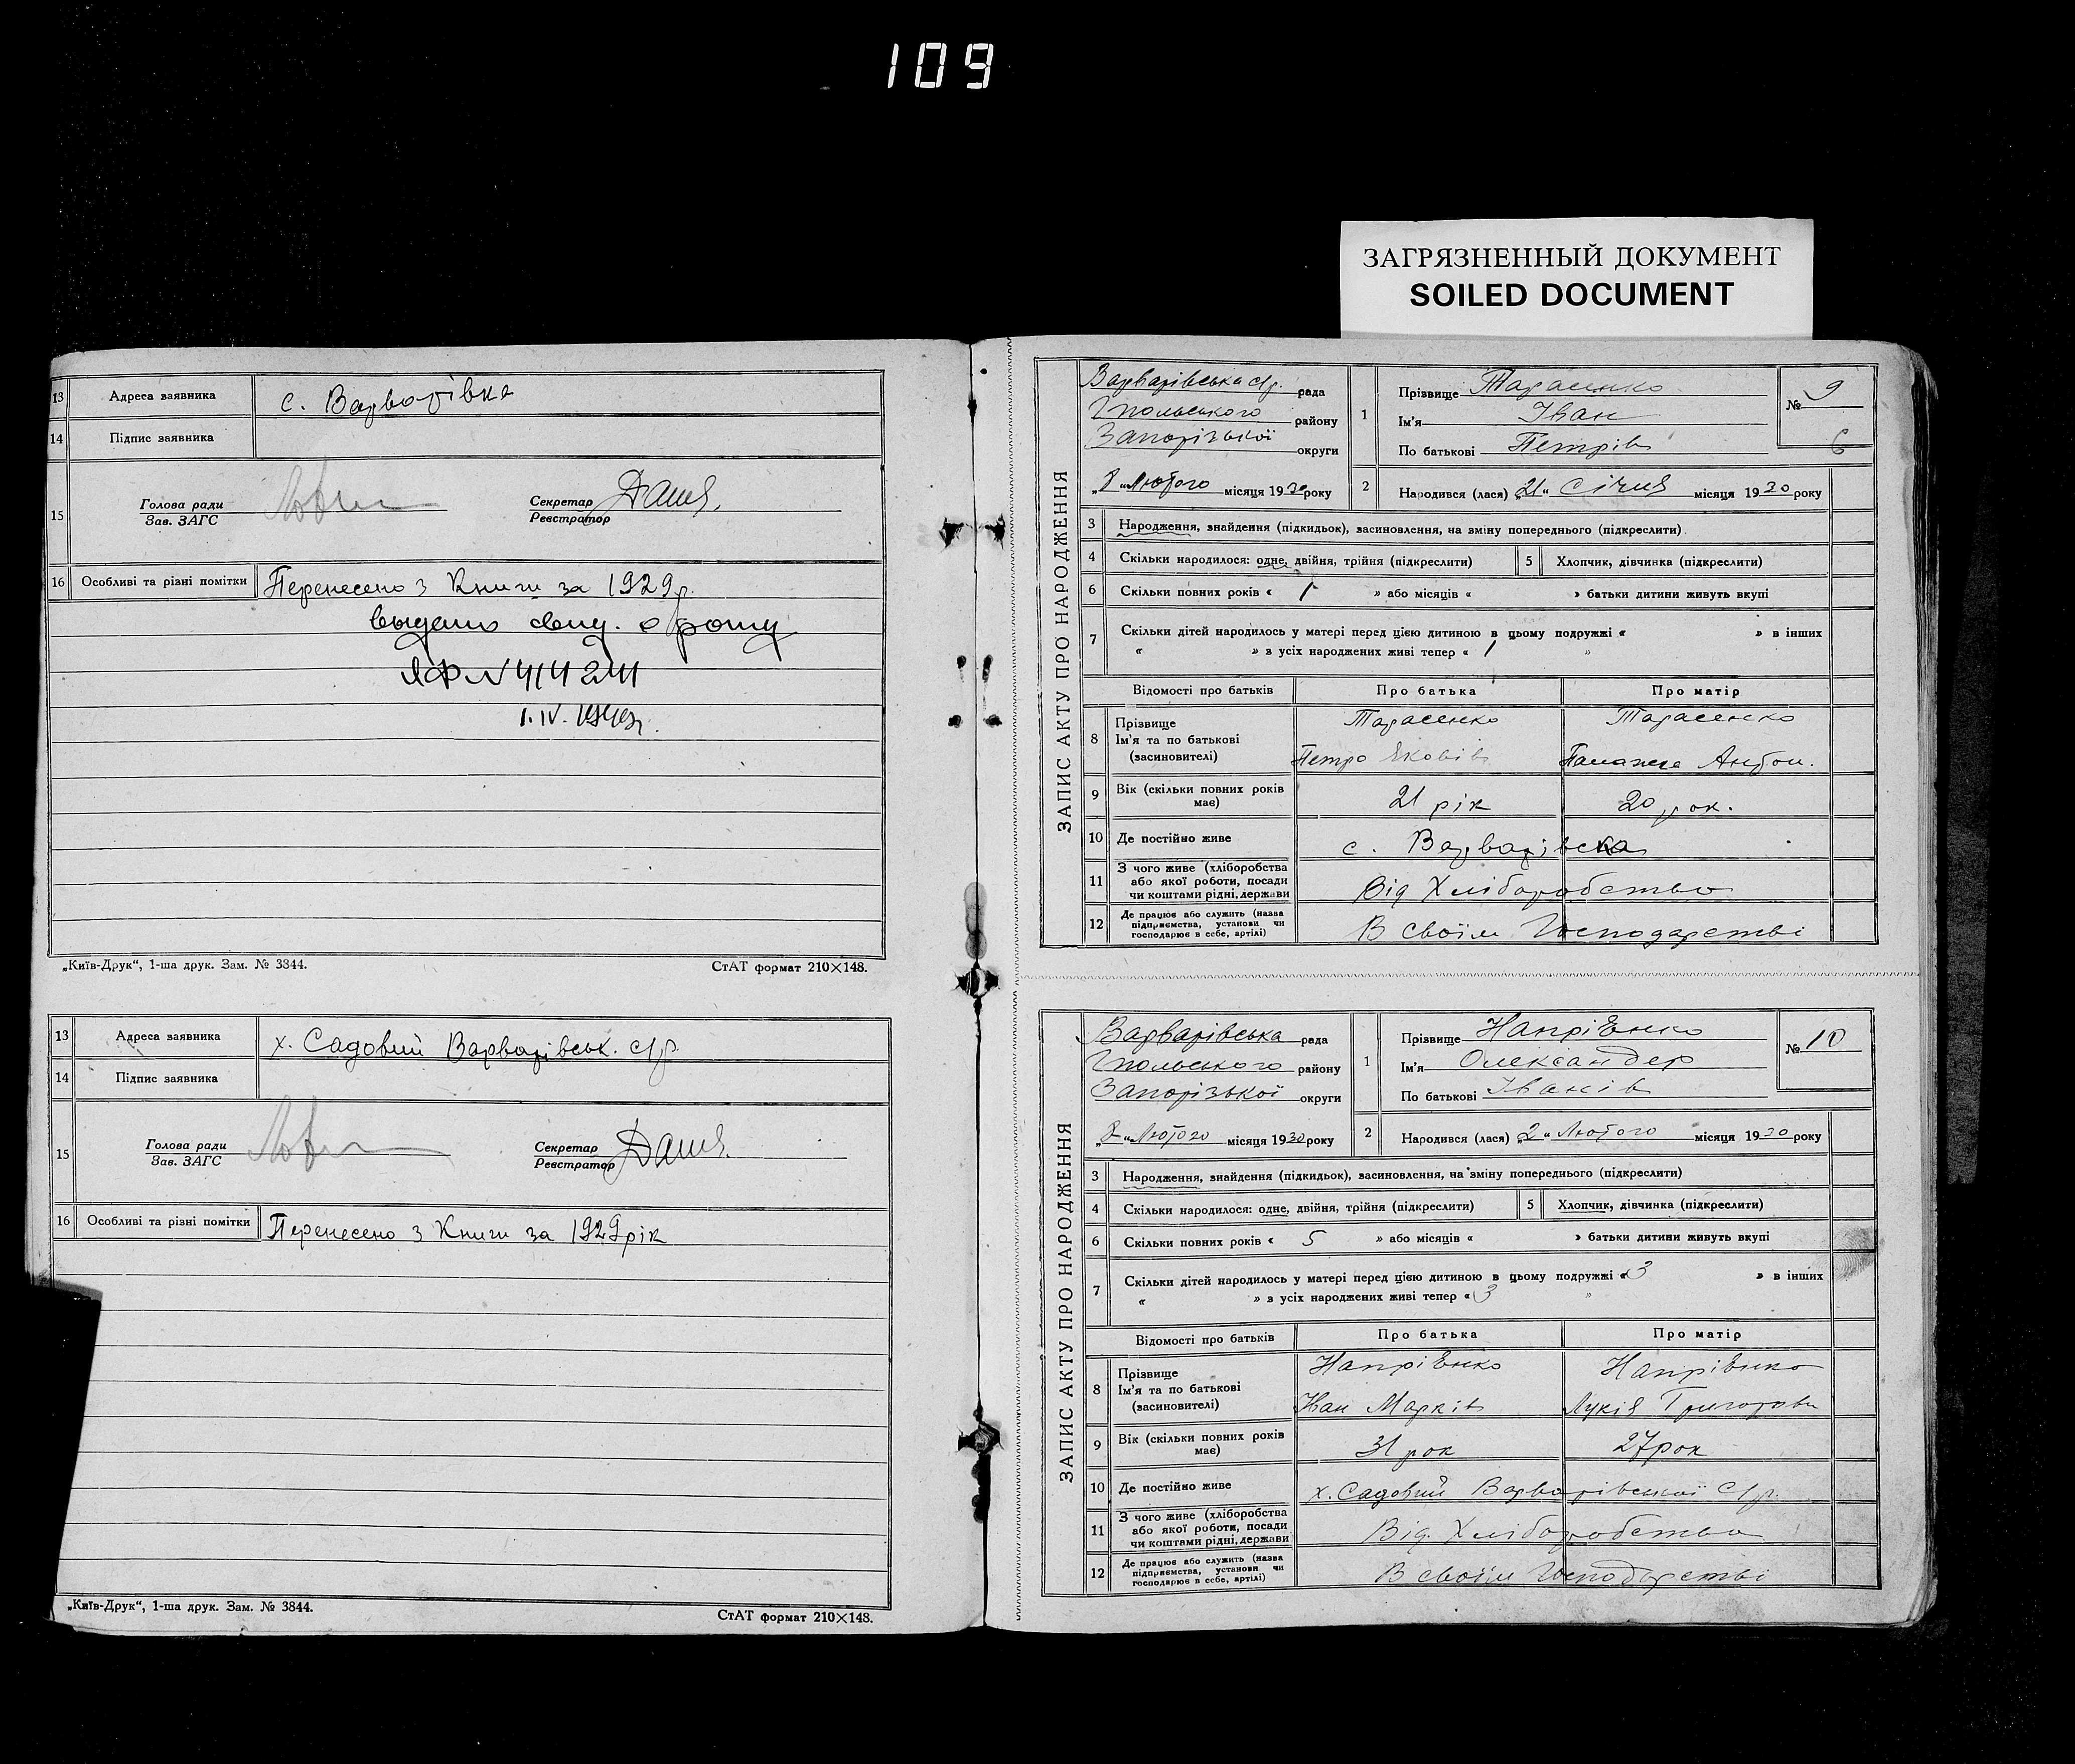 109
ЗАГРЯЗНЕННЫЙ ДОКУМЕНТ
SOILED DOCUMENT
13 Адреса заявника с. Варварівка
14 Підпис заявника
15 Голова ради
Зав. ЗАГС
Секретар
Реєстратор
16 Особливі та різні помітки Перенесено з Книги за 1929р.
выдано свид. о рожд
ЯФ № 414241
„Київ-Друк“, 1-ша друк. Зам. № 3844. СтАТ формат 210×148.
13 Адреса заявника х. Садовий Варварівськ. с/р.
14 Підпис заявника
15 Голова ради
Зав. ЗАГС
Секретар
Реєстратор
16 Особливі та різні помітки Перенесено з Книги за 1929рік
„Київ-Друк“, 1-ша друк. Зам. № 3844. СтАТ формат 210×148.
ЗАПИС АКТУ ПРО НАРОДЖЕННЯ
Варварівська с/р. рада
району
Запорізької округи
„8“ Лютого місяця 1930 року
1 Прізвище Тарасенко
Ім'я Іван
По батькові Петрів
№ 9
6
2 Народився (лася) „21“ Січня місяця 1930 року
3 Народження, знайдення (підкидьок), засиновлення, на зміну попереднього (підкреслити)
4 Скільки народилося: одне, двійня, трійня (підкреслити) 5 Хлопчик, дівчинка (підкреслити)
6 Скільки повних років « 1 » або місяців « » батьки дитини живуть вкупі
7 Скільки дітей народилось у матері перед цією дитиною в цьому подружжі « » в інших
« » з усіх народжених живі тепер « 1 »
Відомості про батьків Про батька Про матір
8 Прізвище Тарасенко Тарасенко
Ім'я та по батькові
(засиновителі) Петро Яковів Антон.
9 Вік (скільки повних років має) 21 рік 20 рок.
10 Де постійно живе с. Варварівка
11 З чого живе (хліборобства
або якої роботи, посади
чи коштами рідні, держави Від Хліборобства
12 Де працює або служить (назва
підприємства, установи чи
господарює в себе, артілі) В своїм Господарстві
ЗАПИС АКТУ ПРО НАРОДЖЕННЯ
Варварівська рада
району
Запорізької округи
„8“ Лютого місяця 1930 року
1 Прізвище Напрієнко
Ім'я Олександер
По батькові Іванів
№ 10
2 Народився (лася) „2“ Лютого місяця 1930 року
3 Народження, знайдення (підкидьок), засиновлення, на зміну попереднього (підкреслити)
4 Скільки народилося: одне, двійня, трійня (підкреслити) 5 Хлопчик, дівчинка (підкреслити)
6 Скільки повних років « 5 » або місяців « » батьки дитини живуть вкупі
7 Скільки дітей народилось у матері перед цією дитиною в цьому подружжі « 3 » в інших
« » з усіх народжених живі тепер « 3 »
Відомості про батьків Про батька Про матір
8 Прізвище Напрієнко Напрієнко
Ім'я та по батькові
(засиновителі) Іван Марків Лукія Григорови
9 Вік (скільки повних років має) 31 рок 27 рок
10 Де постійно живе х. Садовий Варварівської С/р.
11 З чого живе (хліборобства
або якої роботи, посади
чи коштами рідні, держави Від. Хліборобства
12 Де працює або служить (назва
підприємства, установи чи
господарює в себе, артілі) В своїм Господарстві